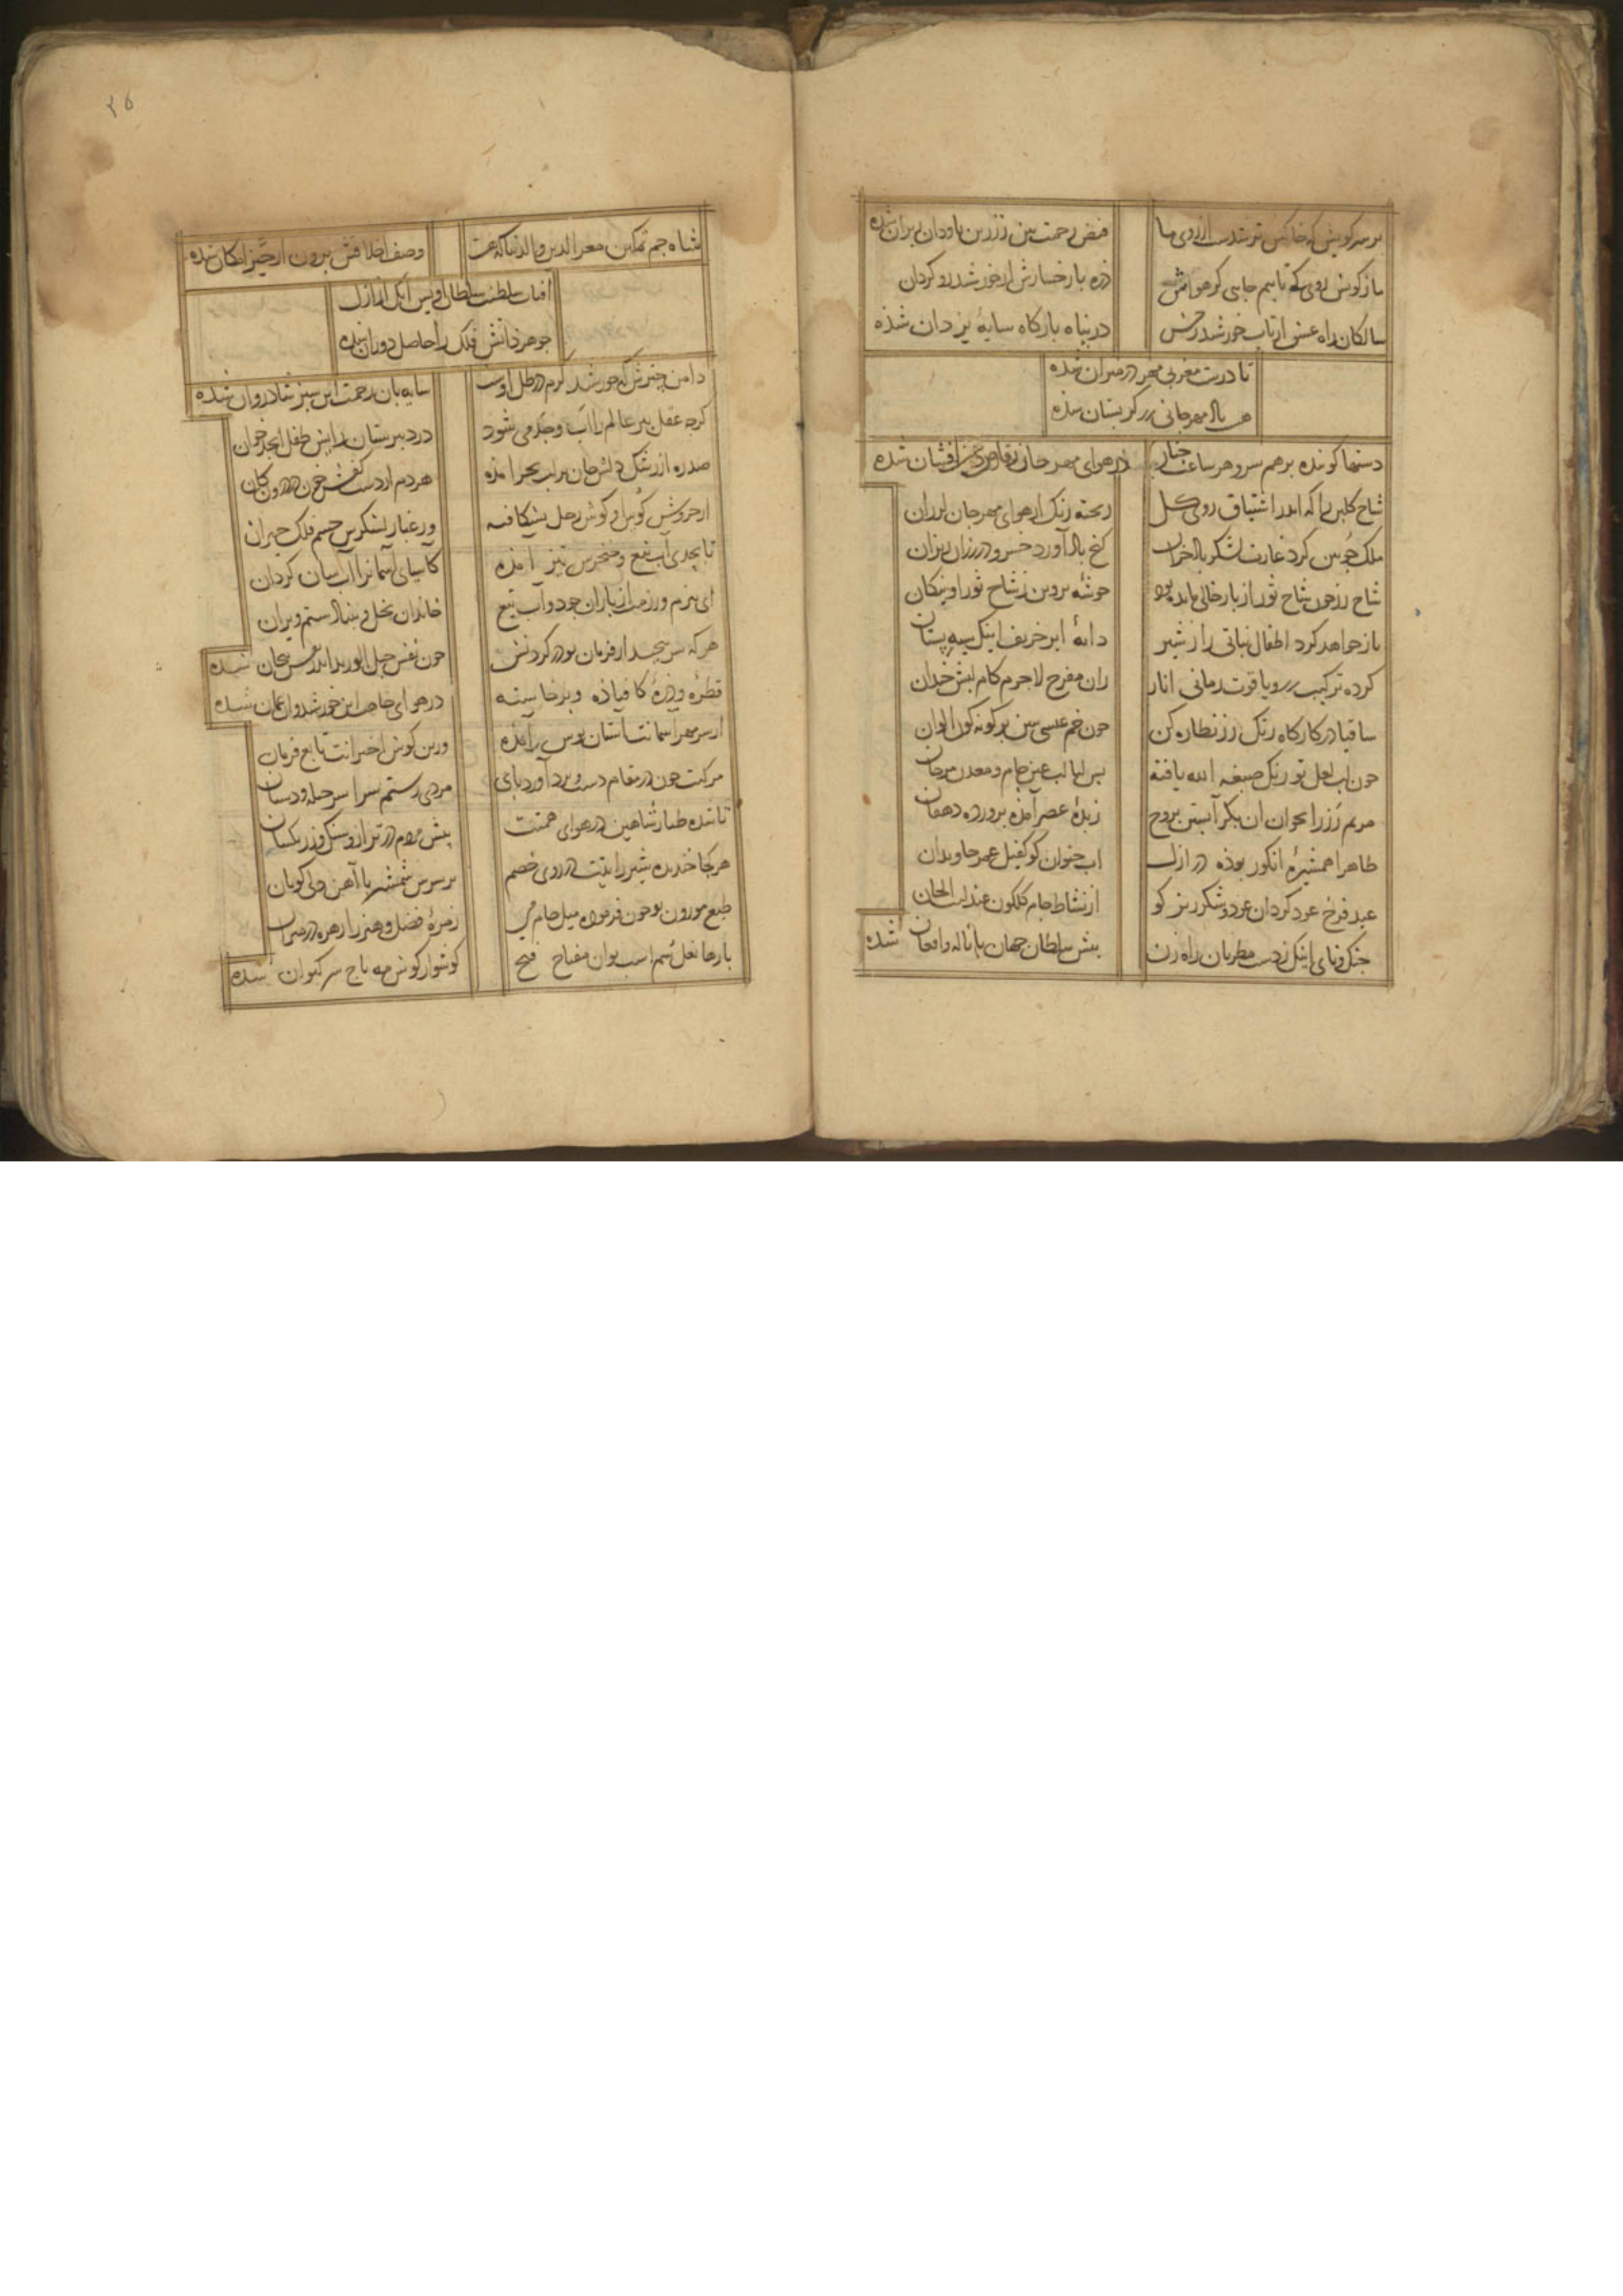 بر سر کویش که خاکش تر شدست از روی ما
فیض رحمت بین ز زرین ناودان ریزان شده
ماز کویش روی کی تابیم جایی کز هواش
ذره با رخسارش از خورشید رو گردان
سالکان راه عشق از تاب خورشید رخش
در پناه بارگاه سایهٔ یزدان شده
تا درست مغربی مهر در میزان شده
باد مهرجانی زرگر بستان شده
دستها کوبنده بر هم سرو هر ساعت چنار
در هوای مهرجان رقاص زرافشان شده
شاخ گلبن را که اندر اشتیاق روی گل
ریخته رنگ از هوای مهرجان لرزان
ملک جوبین کرد غارت لشکر باد خزان
گنج باد آورد خسرو در رزان ریزان
شاخ رز چون شاخ ثور از بار خالی مانده بود
خوشهٔ پروین ز شاخ ثور آونگان
باز خواهد کرد اطفال نباتی را ز شیر
دایهٔ ابر خریف اینک سیه پستان
کرده ترکیب زر و یاقوت رمانی انار
زان مفرح لاجرم کام لبش خندان
ساقیا در کارگاه رنگ رز نظاره کن
چون خم عیسی بین بر گونه گون الوان
چون لب لعل تو رنگ صبغة الله یافته
پس لبالب عین جام و معدن مرجان
مریم رز را بخوان آن بکر آبستن بروح
زبدهٔ عصر آمده پروردهٔ دهقان
ظاهرا همشیرهٔ انگور بوده در ازل
آب حیوان کو کفیل عمر جاویدان
عید فرخ عود گردان عود و شکر ریز کو
از نشاط جام گلگون عندلیب الحان
چنگ و نای اینک ز دست مطربان راه زن
پیش سلطان جهان با ناله و افغان شده
۲۵
شاه جم تمکین معز الدین والدنیا که هست
وصف اخلاقش برون از حیز امکان شده
آفتاب سلطنت سلطان اویس آنک از ازل
جوهر ذاتش فلک را حاصل دوران شده
دامن چترش که خورشید کرم در ظل اوست
سایه بان رحمت این سبز شادروان شده
گرچه عقل پیر عالم را اب و جد می شود
در دبیرستان رایش طفل ابجد خوان
صدره از رشک دلش جان بر لب بحر آمده
هردم از دست کفش خون در درون کان
از خروش کوس او گوش زحل بشکافته
وز غبار لشکرش چشم فلک حیران
تا بحدی آب تیغ و خنجرش تیز آمده
کاسیای آسمان را آب آن گردان
ای ببزم و رزمت از باران جود و آب تیغ
خاندان بخل و بنیاد ستم ویران
هر که سر پیچیده از فرمان تو در گردنش
خون نفس حبل الورید اندر تنش پیچان شده
قطره و ذرهٔ کافتاده و برخاسته
در هوای خاصت این خورشید و آن عمان شده
از سر مهر آسمانت آستان بوس آمده
وز بن گوش اخترانت تابع فرمان
مرکبت چون در مقام دست برد آورد پای
مردی رستم سراسر حیله و دستان
تا شده طیار شاهین در هوای همتت
پیش مردم در ترازو سنگ و زر یکسان
هر کجا خندیده شیر رایتت در روی خصم
بر سرش شمشیر با آهن دلی گریان
طبع موزون تو چون فرموده میل جام می
زمرهٔ فضل و هنر را زهره در میزان
بارها نعل سم اسب تو آن مفتاح فتح
گوشوار گوش مه تاج سر کیوان شده